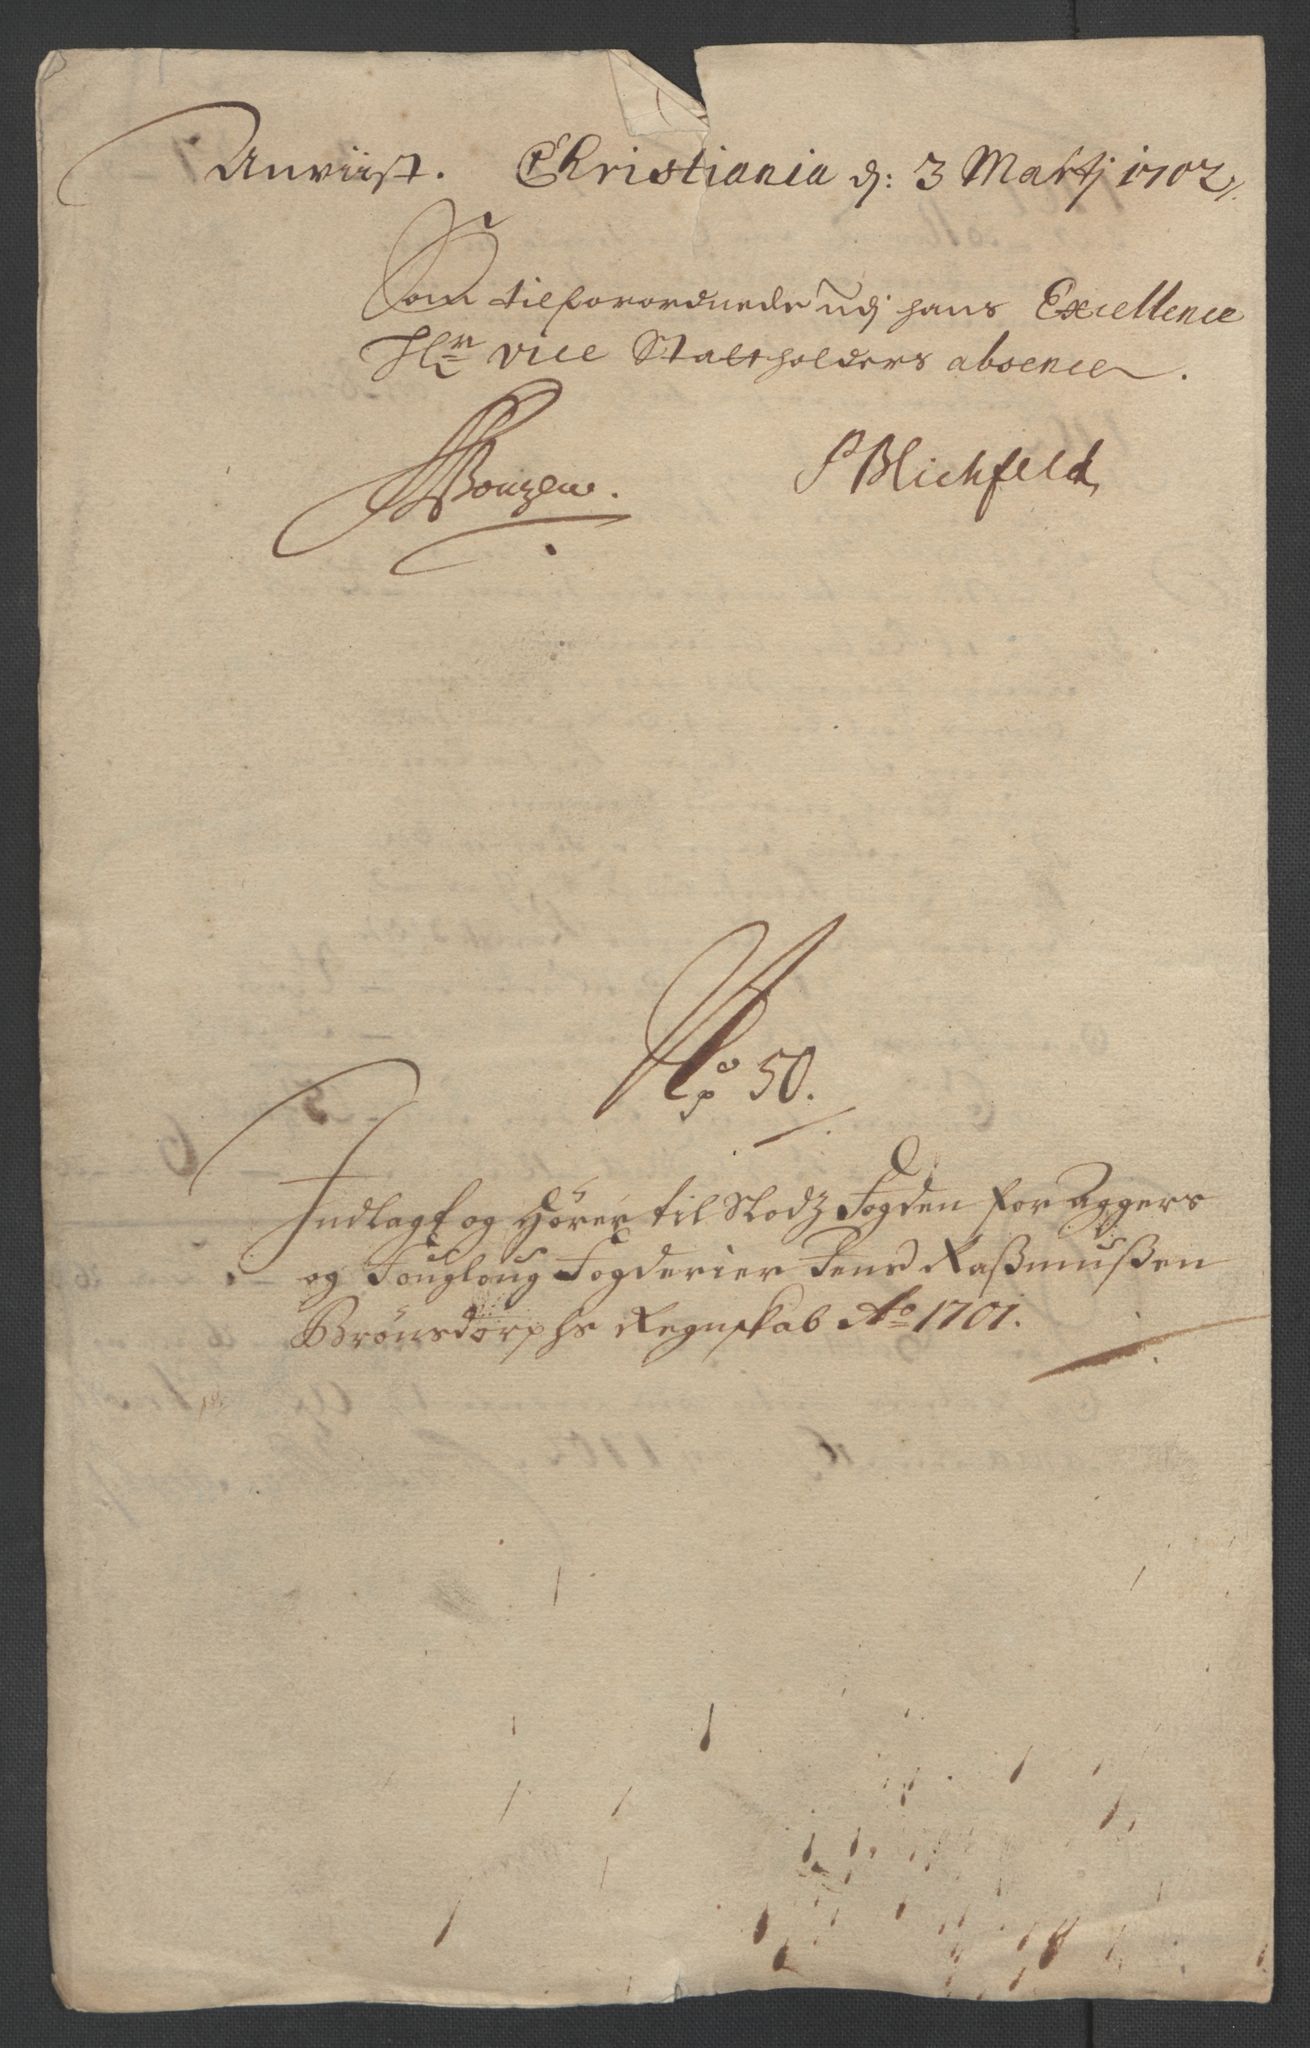 Anviist. Christiania d: 3 Martj 1702/.
Som tilforordnede udj hans Excellence
Hr vice Stattholders absence.
P Blichfeld
No 50.
Indlagt og Hörer til Slodz Fogden for Aggers
og Foughoug Fogderier Jens Raßmußen
Brönsdorphs Regnskab Ao 1701.